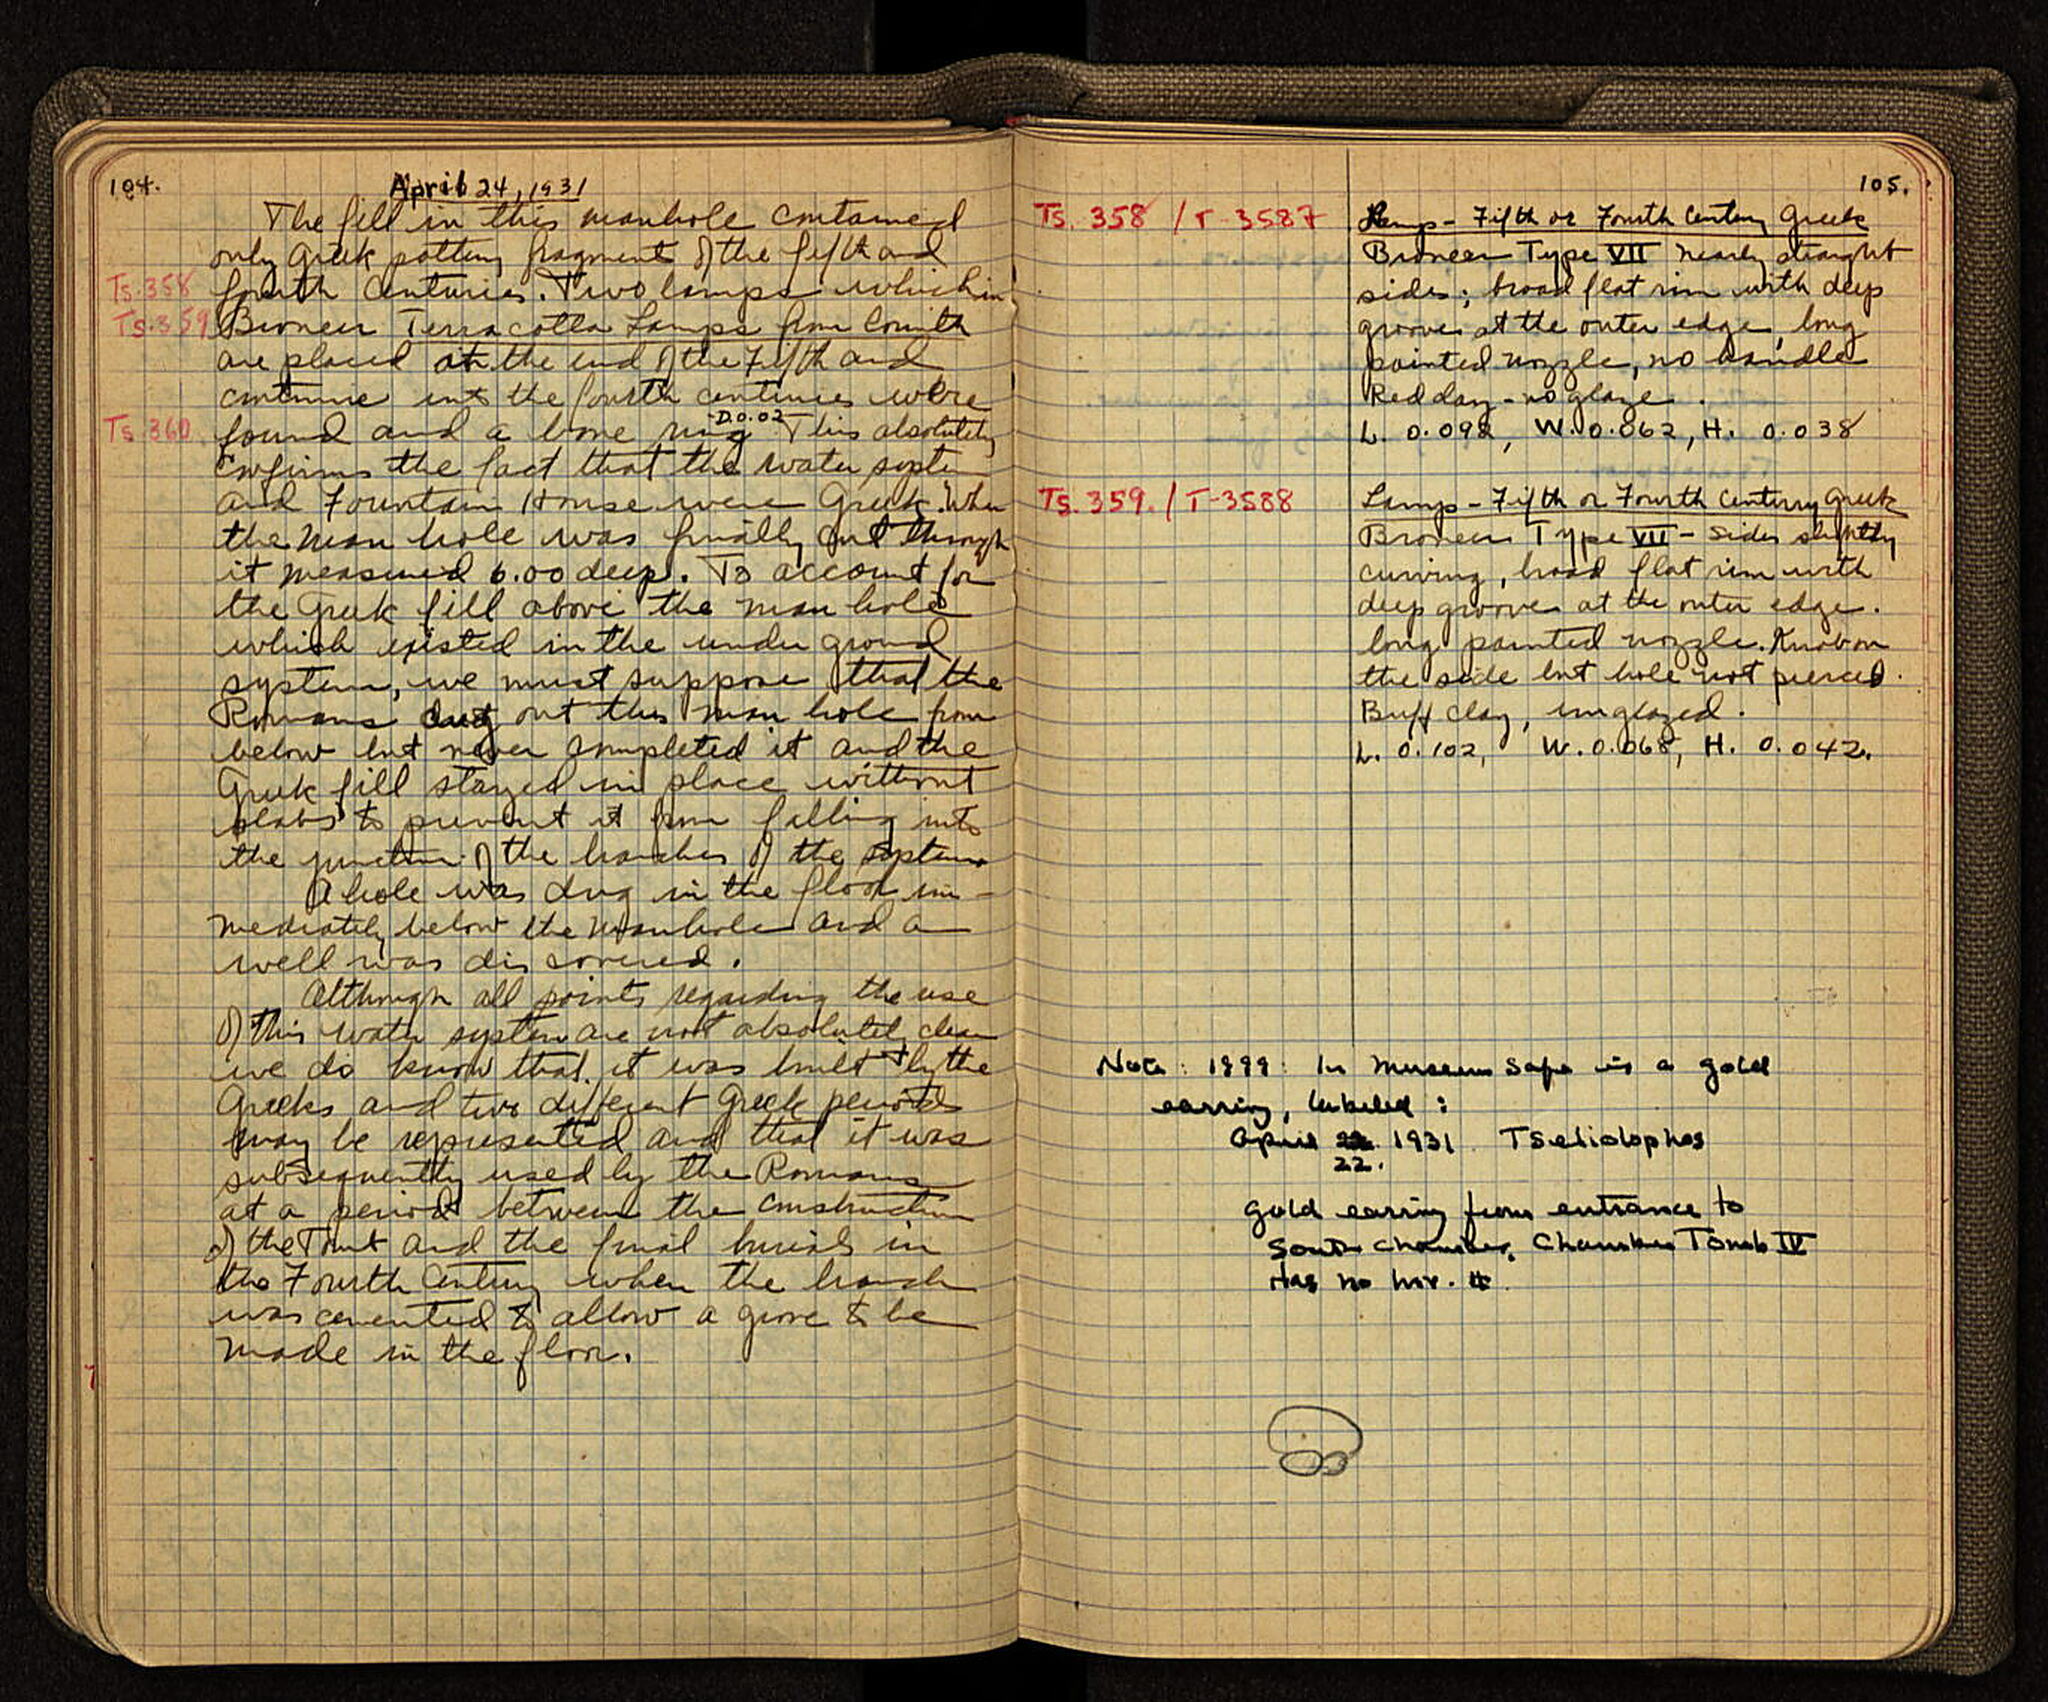 104.
April 24, 1931
The fill in this manhole contained
only Greek pottery fragment of the fifth and
Ts. 358 fourth centuries. Two lamps which in
Ts. 359 Broneer Terracotta Lamps from Corinth
are placed at the end of the Fifth and
continue into the fourth centuries were
D. 0.02
Ts 360. found and a bone ring. This absolutely
confirms the fact that the water system
and Fountain House were Greek. When
the man hole was finally cut through
it measured 6.00 deep. To account for
the Greek fill above the man hole
which existed in the under ground
system, we must suppose that the
Romans dug out this man hole from
below but never completed it and the
Greek fill stayed in place without
slabs to prevent it from falling into
the junction of the branches of the system.
A hole was dug in the floor im-
mediately below the manhole and a
well was discovered.
Although all points regarding the use
of this water system are not absolutely clear
we do know that it was built by the
Greeks and two different Greek periods
may be represented and that it was
subsequently used by the Romans
at a period between the construction
of the Tomb and the final burials in
the Fourth Century when the branch
was cemented to allow a grave to be
made in the floor.
105.
Ts. 358 / T-3587 Lamp - Fifth or Fourth Century Greek
Broneer Type VII nearly straight
sides; broad flat rim with deep
groove at the outer edge, long
pointed nozzle, no handle
Red clay - no glaze.
L. 0.098, W. 0.062, H. 0.038
Ts. 359. / T-3588 Lamp - Fifth or Fourth Century Greek
Broneer Type VII - sides slightly
curving, broad flat rim with
deep groove at the outer edge.
long pointed nozzle. Knob on
the side but hole not pierced.
Buff clay, unglazed.
L. 0.102, W. 0.068, H. 0.042.
Note: 1999: In Museum safe is a gold
earring, labeled:
April 1931 Tseliolophos
22.
gold earring from entrance to
South chamber, Chamber Tomb IV
Has no inv. #.